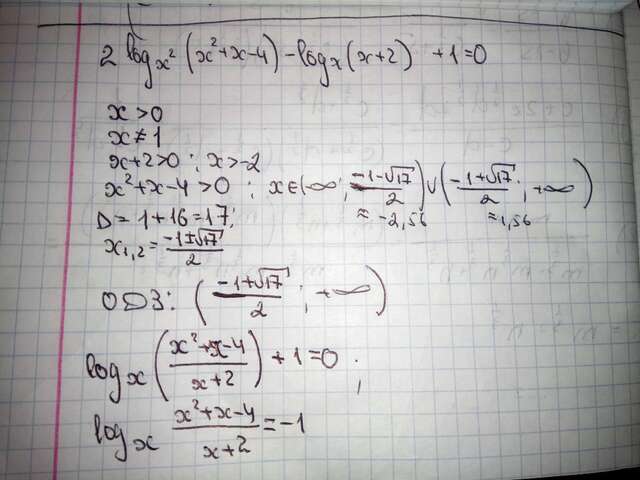 2 log_{x²} (x²+x-4) - log_x (x+2) + 1 = 0
x > 0
x ≠ 1
x+2>0 ; x>-2
x²+x-4 >0 ; x∈(-∞; \frac{-1-√17}{2}) ∪ (\frac{-1+√17}{2}; +∞)
≈ -2,56 ≈ 1,56
D = 1+16 = 17;
x_{1,2} = \frac{-1±√17}{2}
ОДЗ: (\frac{-1+√17}{2}; +∞)
log_x (\frac{x²+x-4}{x+2}) + 1 = 0 ;
log_x \frac{x²+x-4}{x+2} = -1